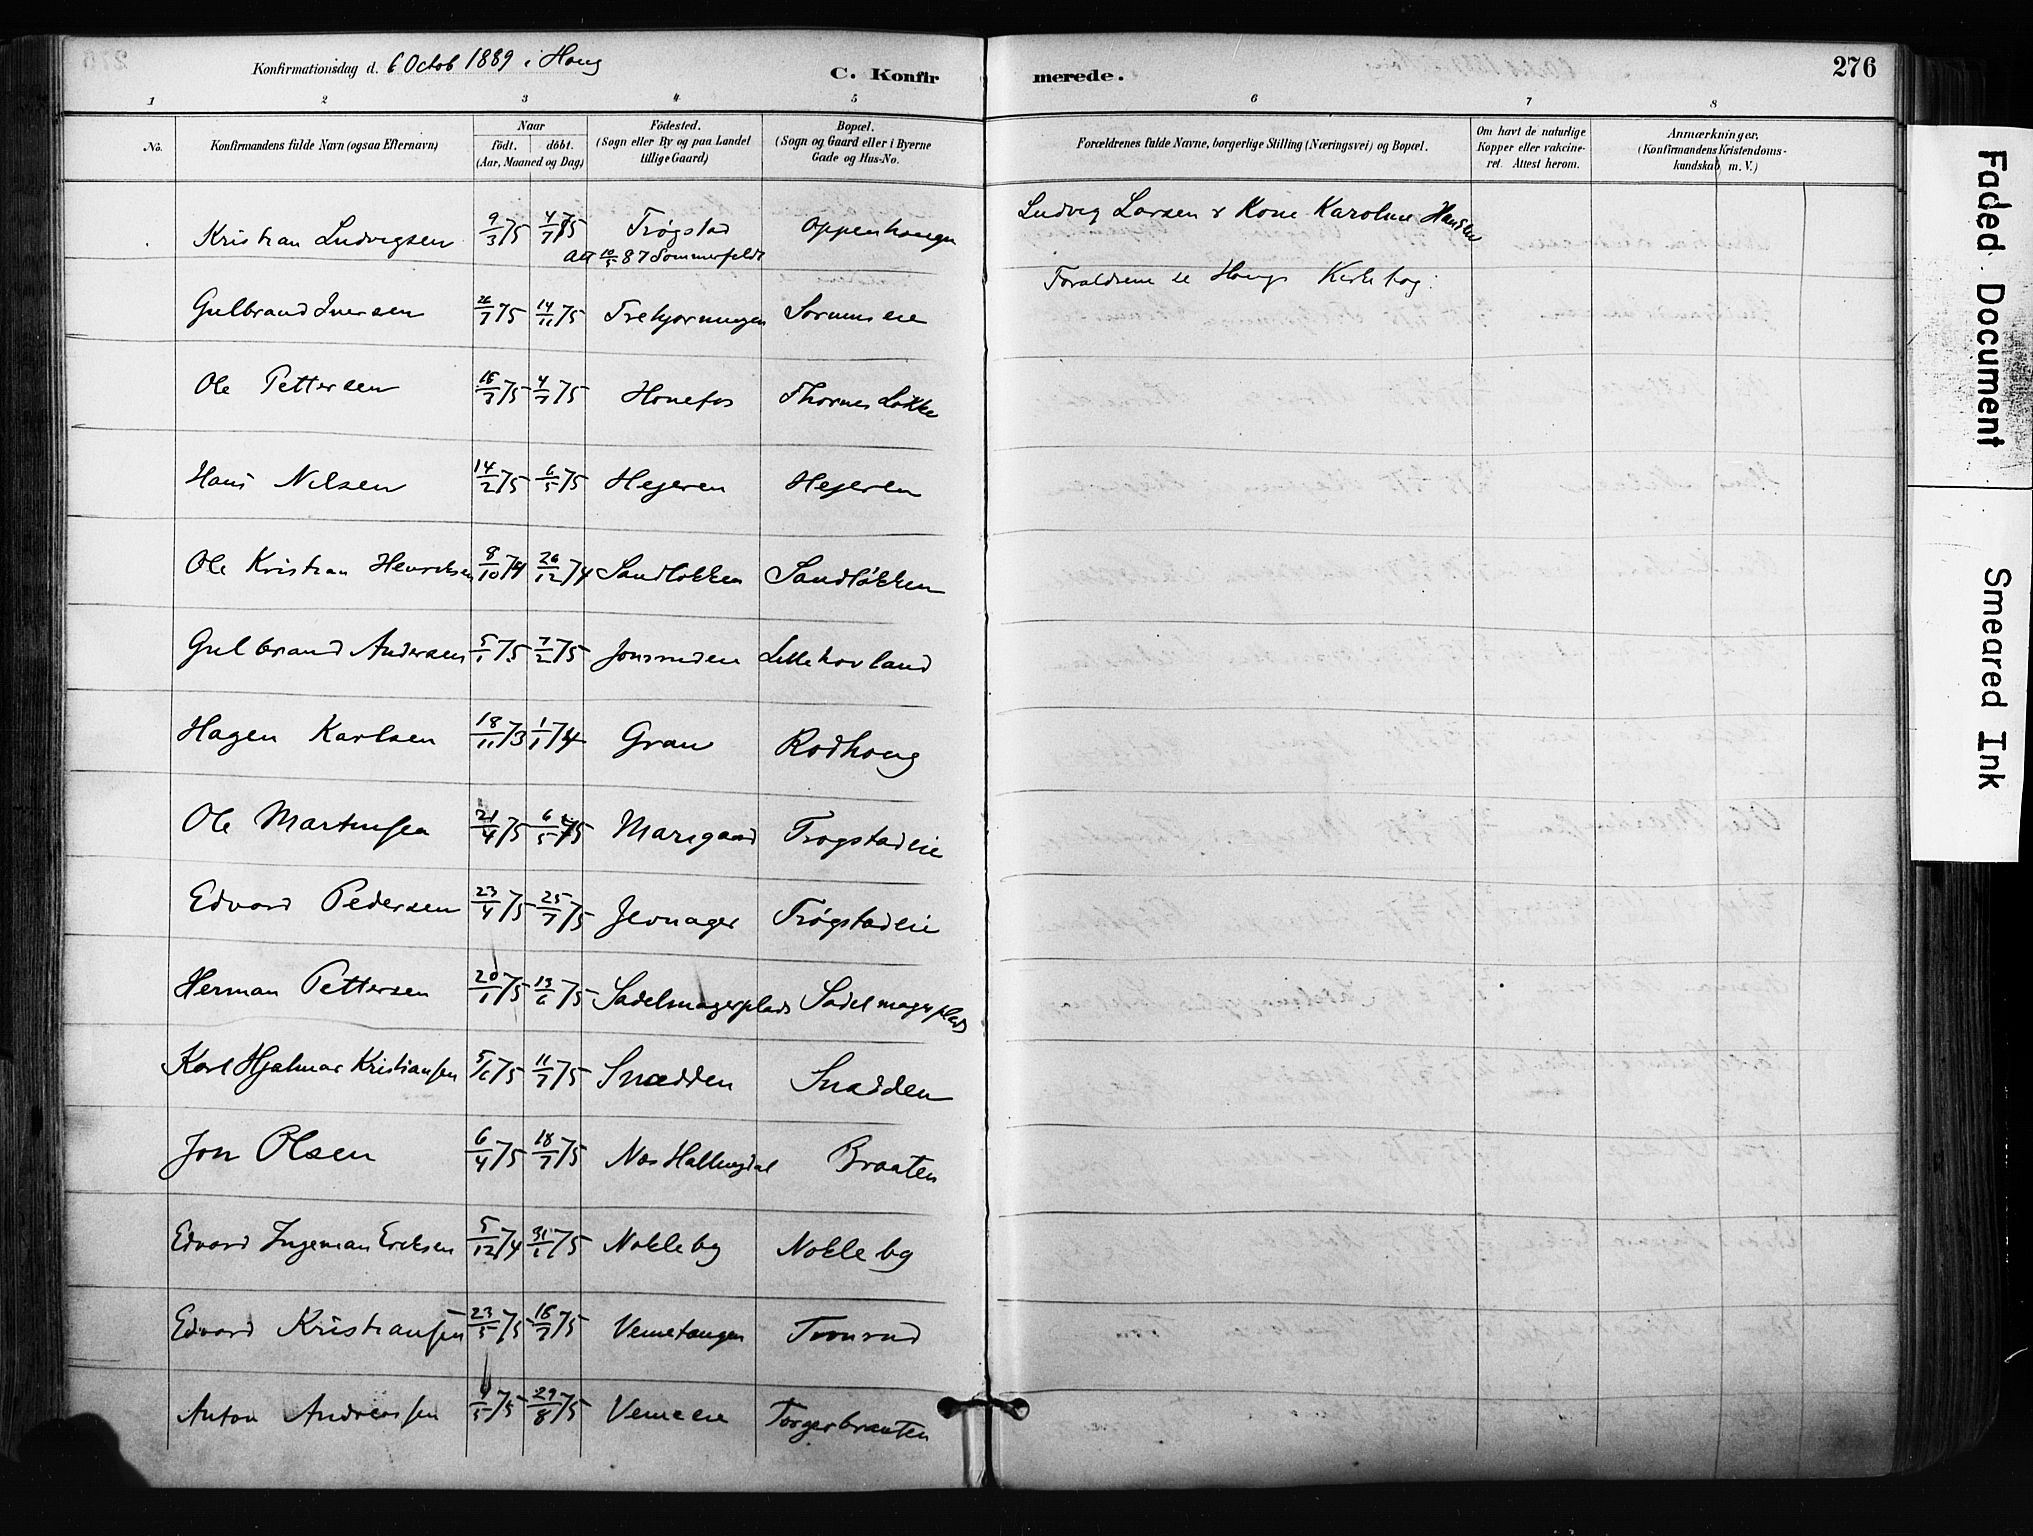 Konfirmationsdag d. 6 Octob 1889 i Houg
C. Konfirmerede.
276
1 2 3 4 5 6 7 8
No.
Konfirmandens fulde Navn (ogsaa Efternavn)
Naar
født. døbt.
(Aar, Maaned og Dag)
Fødested.
(Sogn eller By og paa Landet tillige Gaard)
Bopæl.
(Sogn og Gaard eller i Byerne Gade og Hus-No.
Forældrenes fulde Navne, borgerlige Stilling (Næringsvei) og Bopæl.
Om havt de naturlige Kopper eller vakcineret. Attest herom.
Anmærkninger.
(Konfirmandens Kristendomskundskab m. V.)
Kristian Ludvigsen 9/3 75 4/7 75 Trøgstad Oppenhougen Ludvig Larsen & Kone Karoline Hansen
87 Sommerfeldt
Forældrene se Hougs Kirkebog.
Gulbrand Iversen 26/7 75 14/11 75 Sorumseie
Ole Pettersen 4/7 75 Honefos Thornes Løkke
Hans Nilsen 14/2 75 6/5 75 Hejeren Hejeren
Ole Kristian Henriksen 8/10 74 26/12 74 Sandløkken Sandløkken
Gulbrand Andersen 5/1 75 7/2 75 Lillehovland
Hagen Karlsen 18/11 73 1/1 74 Gran Rødhoug
Ole Martinsen 21/4 75 6/5 75 Marigaard Trøgstadeie
Edvard Pedersen 23/4 75 25/7 75 Jevnager Trøgstadeie
Herman Pettersen 20/1 75 13/6 75 Sadelmagerplads Sadelmagerplads
Karl Hjalmar Kristiansen 5/6 75 11/7 75 Snædden Snadden
Jon Olsen 6/4 75 18/7 75 Næs Hallingdal Braaten
Edvard Ingeman Eriksen 5/12 74 Nokleby Nokleby
Edvard Kristiansen 23/5 75 18/7 75 Vemetangen Tronrud
Anton Andreassen 75 29/8 75 Vemeeie Torgerbraaten
Faded Document
Smeared Ink